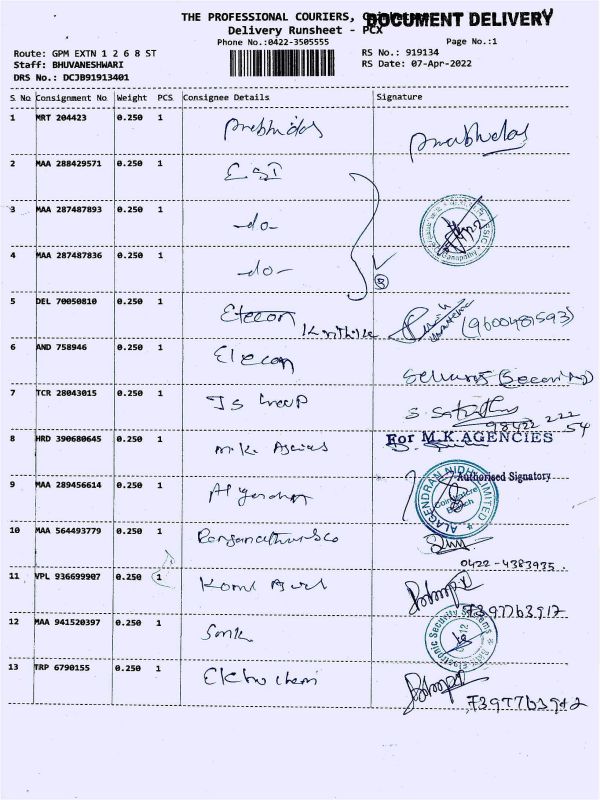 THE PROFESSIONAL COURIERS,
DOCUMENT DELIVERY
Delivery Runsheet - PCX
Phone No.:0422-3505555
Page No.:1
Route: GPM EXTN 1 2 6 8 ST
RS No.: 919134
Staff: BHUVANESHWARI
RS Date: 07-Apr-2022
DRS No.: DCJB91913401
S No Consignment No Weight PCS Consignee Details Signature
1 MRT 204423 0.250 1 Prabhudas Prabhudas
2 MAA 288429571 0.250 1 ESI
3 MAA 287487893 0.250 1 -do-
4 MAA 287487836 0.250 1 -do-
5 DEL 70050810 0.250 1 Etecon (9600481593)
6 AND 758946 0.250 1 Elecon Selvaraj (Security)
7 TCR 28043015 0.250 1 JS Group
98422 222 54
8 HRD 390680645 0.250 1 M.K. Agencies For M.K.AGENCIES
Authorised Signatory
9 MAA 289456614 0.250 1 ALAGENDRAN NIDHI LIMITED Coimbatore Branch
10 MAA 564493779 0.250 1
0422-4383935.
11 VPL 936699907 0.250 1
7397763917
12 MAA 941520397 0.250 1 Electronic Security Systems
13 TRP 6790155 0.250 1 Electro chem